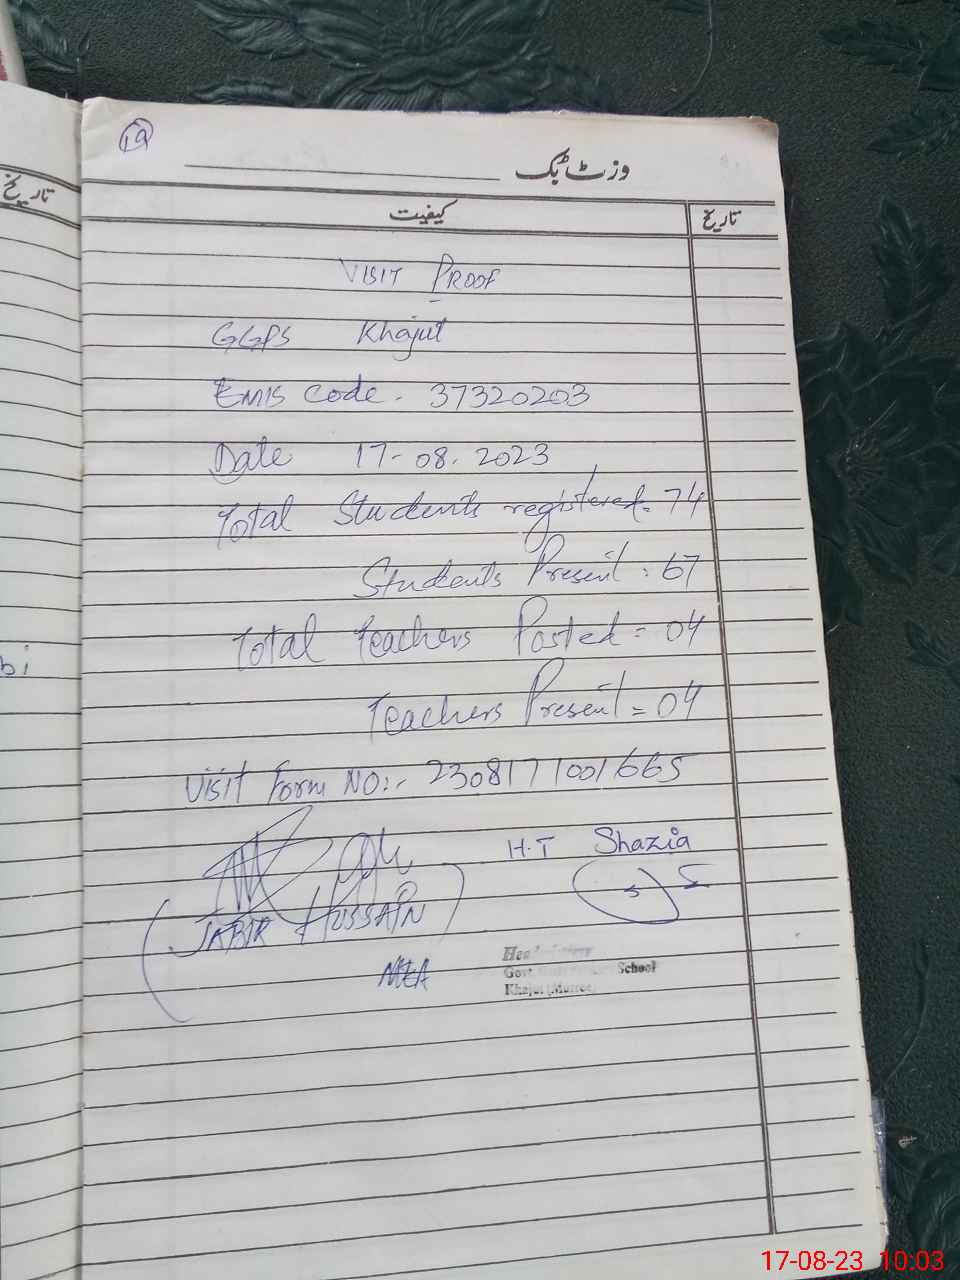 19
وزٹ بک
تاریخ
کیفیت
تاریخ
VISIT PROOF
GGPS Khajut
EMIS Code. 37320203
Date 17-08.2023
Total Students registered = 74
Students Present : 67
bi
Total Teachers Posted = 04
Teachers Present = 04
Visit Form NO:- 2308171001665
H.T Shazia
JABIR HUSSAIN
MEA
Govt. School
Khajut (Murree)
17-08-23 10:03